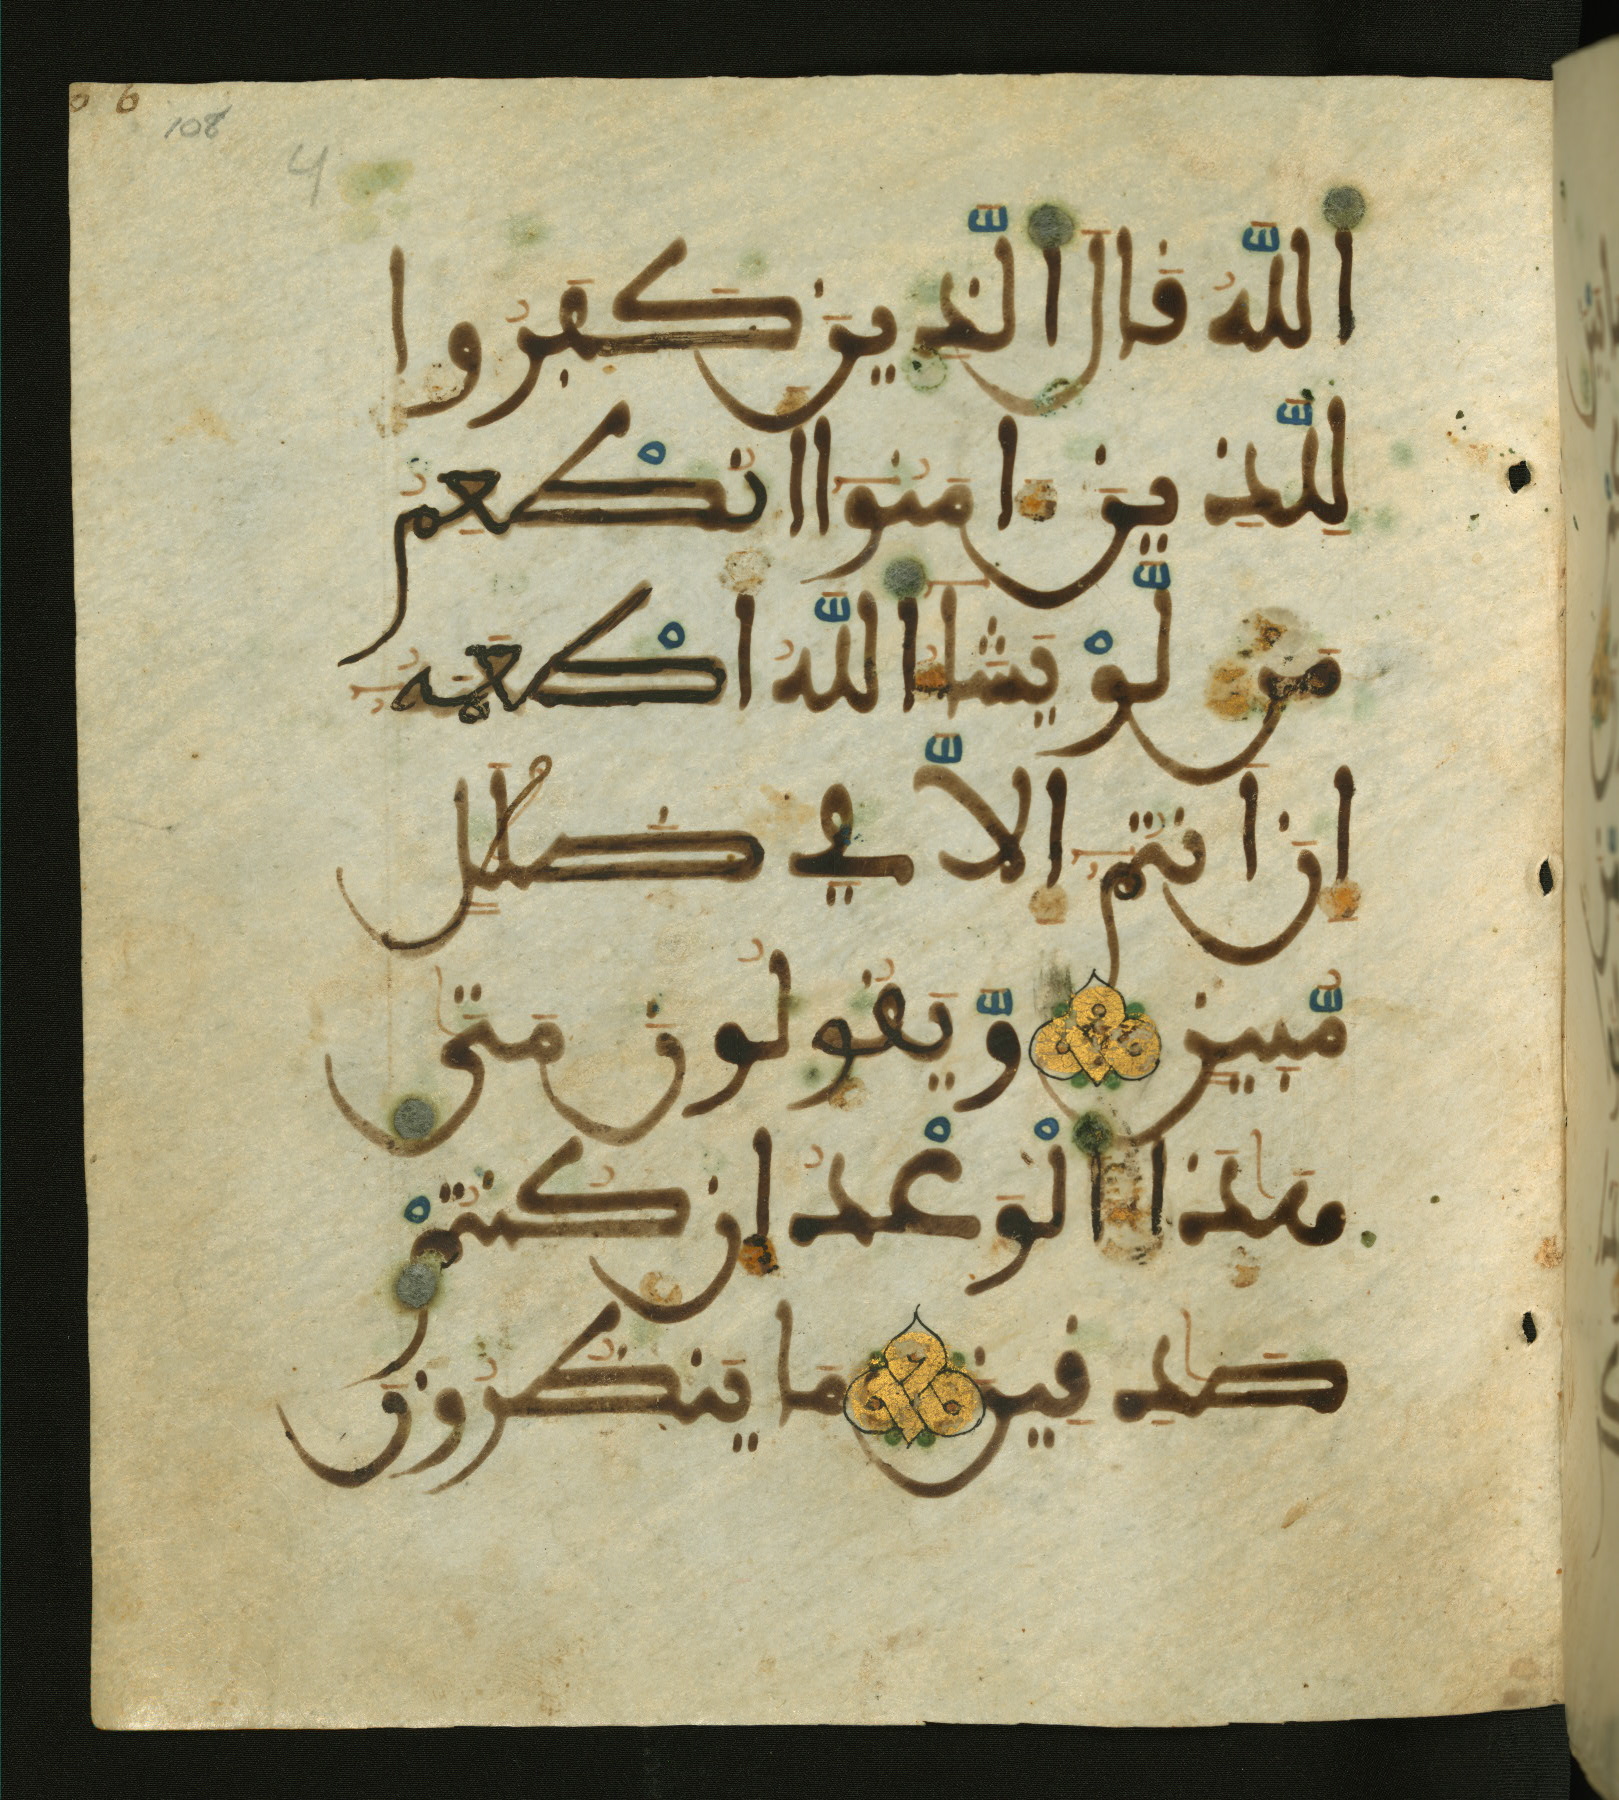 108
4
اللَّهُ قَالَ الَّذِينَ كَفَرُوا
لِلَّذِينَ ءَامَنُوا أَنُطْعِمُ
مَن لَّوْ يَشَاءُ اللَّهُ أَطْعَمَهُ
إِنَ انتُمُ إِلَّا فِي ضَلَٰلٍ
مُّبِينٍ وَّيَقُولُونَ مَتَىٰ
هَٰذَا الْوَعْدُ إِن كُنتُمْ
صَٰدِقِينَ مَا يَنظُرُونَ